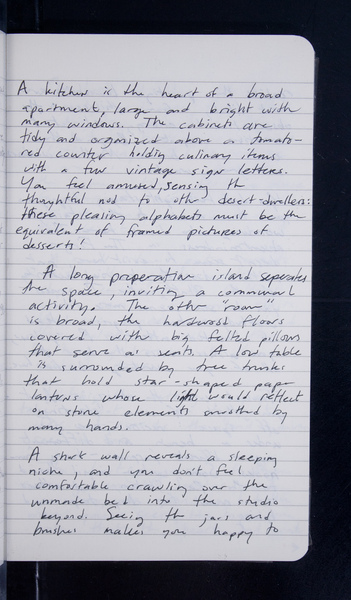 A kitchen is the heart of a broad
apartment, large and bright with
many windows. The cabinets are
tidy and organized above a tomato-
red counter holding culinary items
with a few vintage sign letters.
You feel amused, sensing the
thoughtful nod to other desert-dwellers:
these pleasing alphabets must be the
equivalent of framed pictures of
desserts!
A long preperation island seperates
the space, inviting a communal
activity. The other "room"
is broad, the hardwood floors
covered with big felted pillows
that serve as seats. A low table
is surrounded by tree trunks
that hold star-shaped paper
lanterns whose light would reflect
on stone elements smoothed by
many hands.
A short wall reveals a sleeping
niche, and you don't feel
comfortable crawling over the
unmade bed into the studio
beyond. Seeing the jars and
brushes makes you happy to